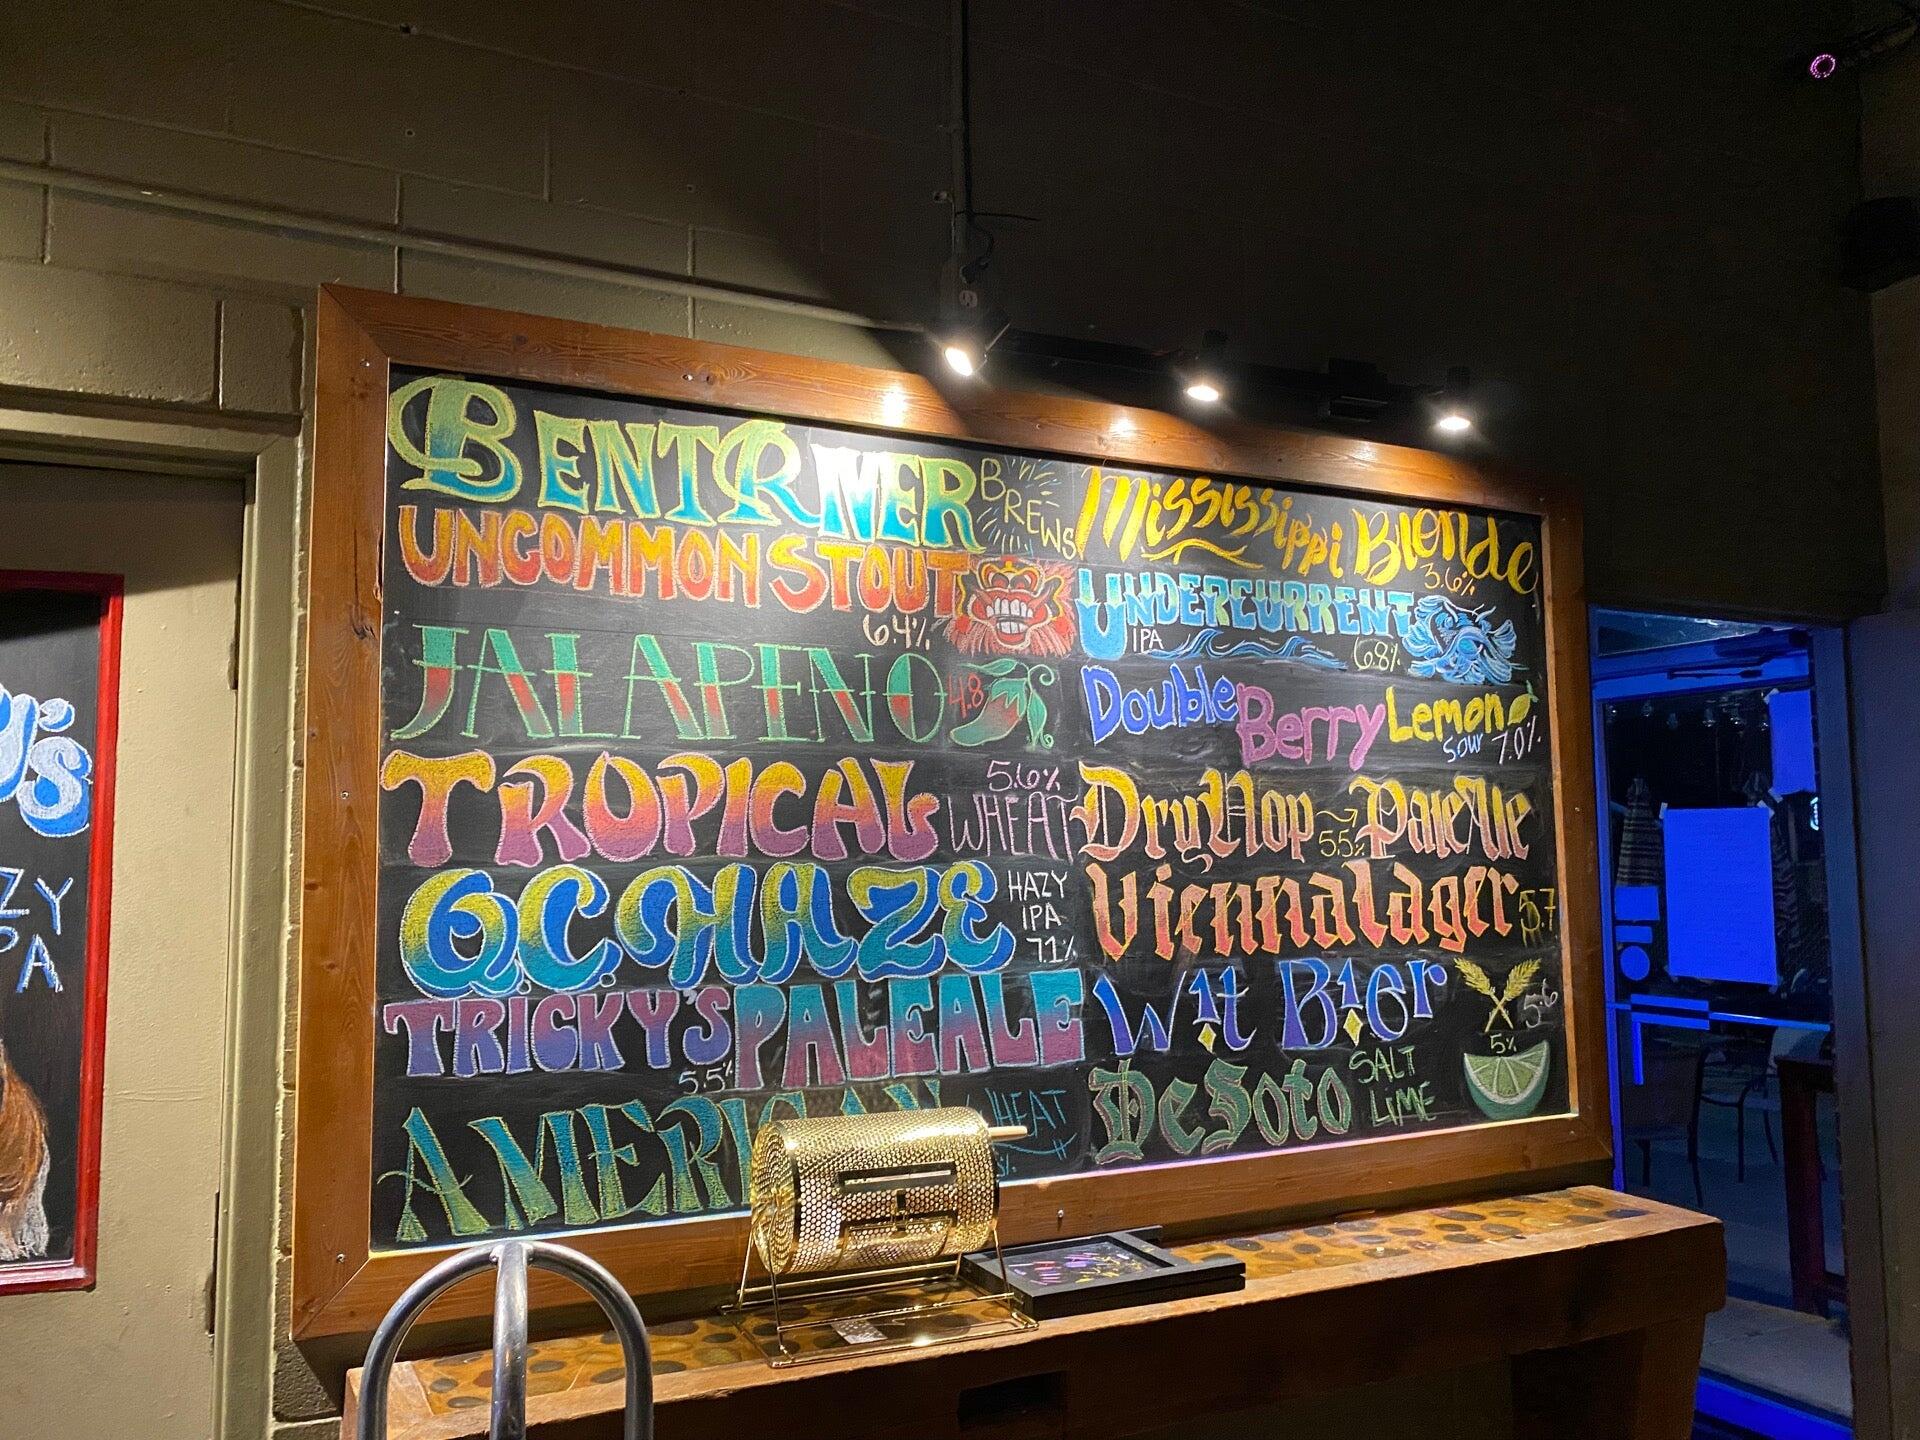 BENT RIVER BREWS
UNCOMMON STOUT
6.4%
JALAPENO 4.8
TROPICAL WHEAT 5.6%
Q.C. HAZE HAZY IPA 7.1%
TRICKY'S PALE ALE
5.5%
AMERICAN WHEAT
Mississippi Blonde
3.6%
UNDERCURRENT
IPA 6.8%
Double Berry Lemon
Sour 7.0%
Dry Hop 5.5% Pale Ale
Vienna Lager 5.7
Wit Bier 5.6
DeSoto SALT LIME 5%
Y'S
ZY
PA